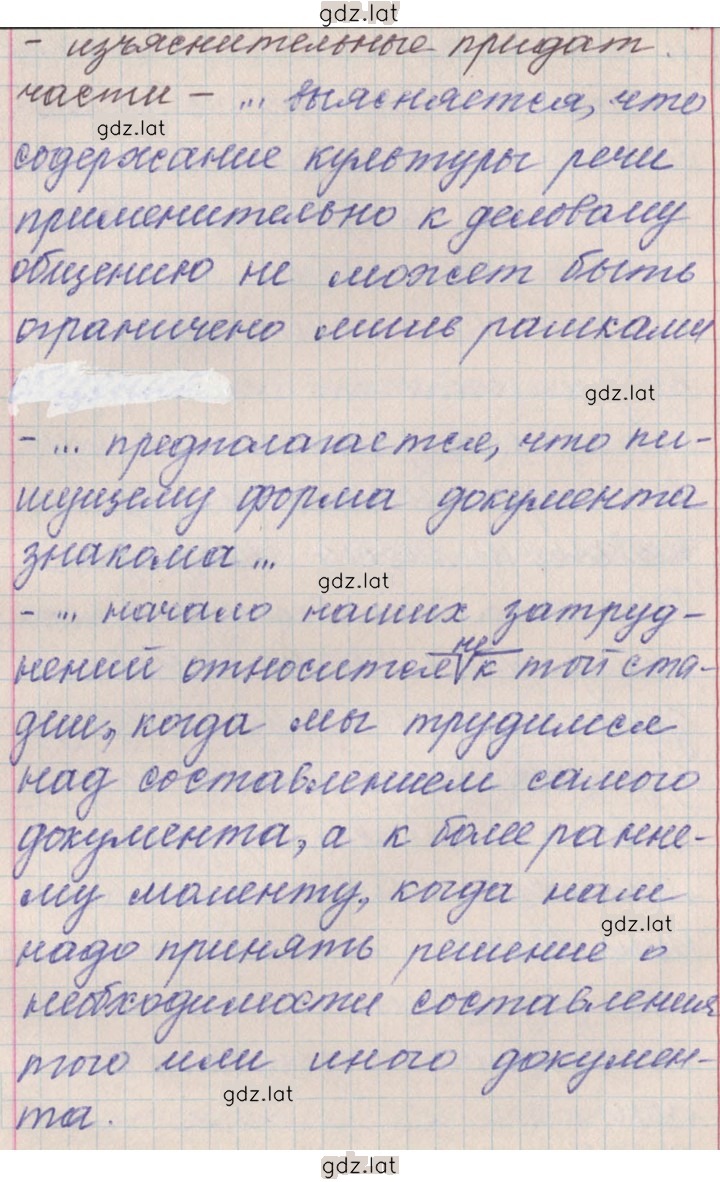 gdz.lat
- изъяснительные придат.
части - ... выясняется, что
gdz.lat
содержание культуры речи
применительно к деловому
общению не может быть
ограничено лишь рамками
gdz.lat
- ... предполагается, что пи-
шущему форма документа
знакома ...
gdz.lat
- ... начало наших затруд-
не
нений относится к той ста-
дии, когда мы трудимся
над составлением самого
документа, а к более ранне-
му моменту, когда нам
gdz.lat
надо принять решение о
необходимости составления
того или иного докумен-
gdz.lat
та.
gdz.lat